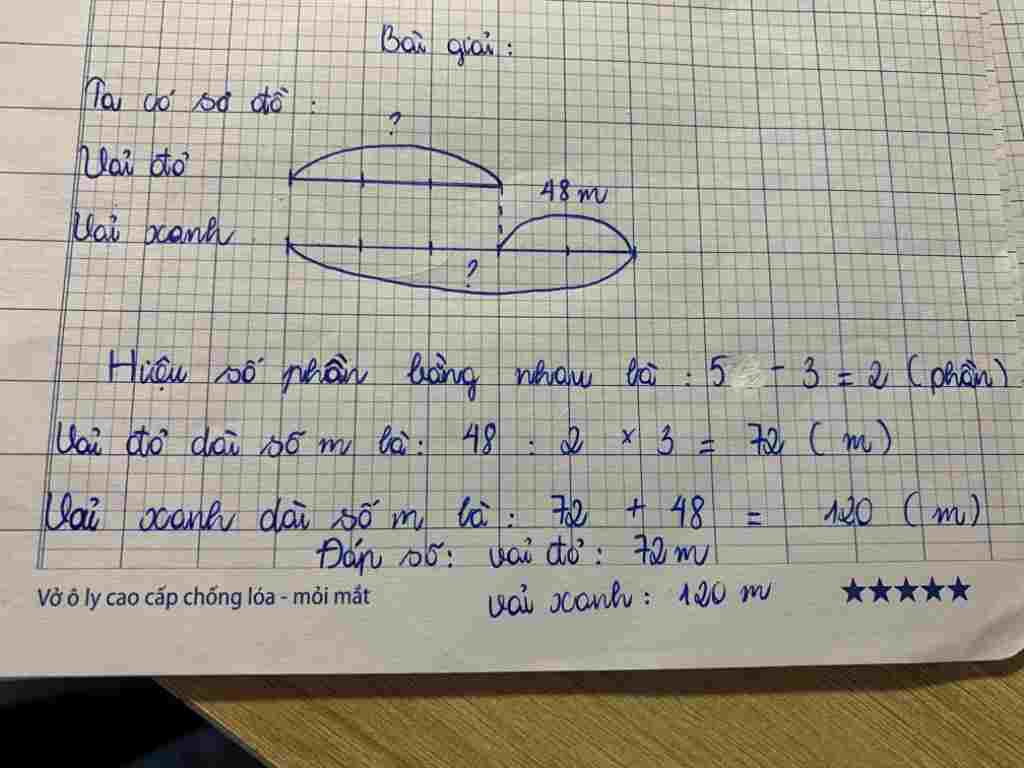 Bài giải :
Ta có sơ đồ :
?
Vải đỏ
48 m
Vải xanh
?
Hiệu số phần bằng nhau là : 5 - 3 = 2 (phần)
Vải đỏ dài số m là : 48 : 2 × 3 = 72 ( m )
Vải xanh dài số m là : 72 + 48 = 120 ( m )
Đáp số : vải đỏ : 72 m
vải xanh : 120 m
Vở ô ly cao cấp chống lóa - mỏi mắt